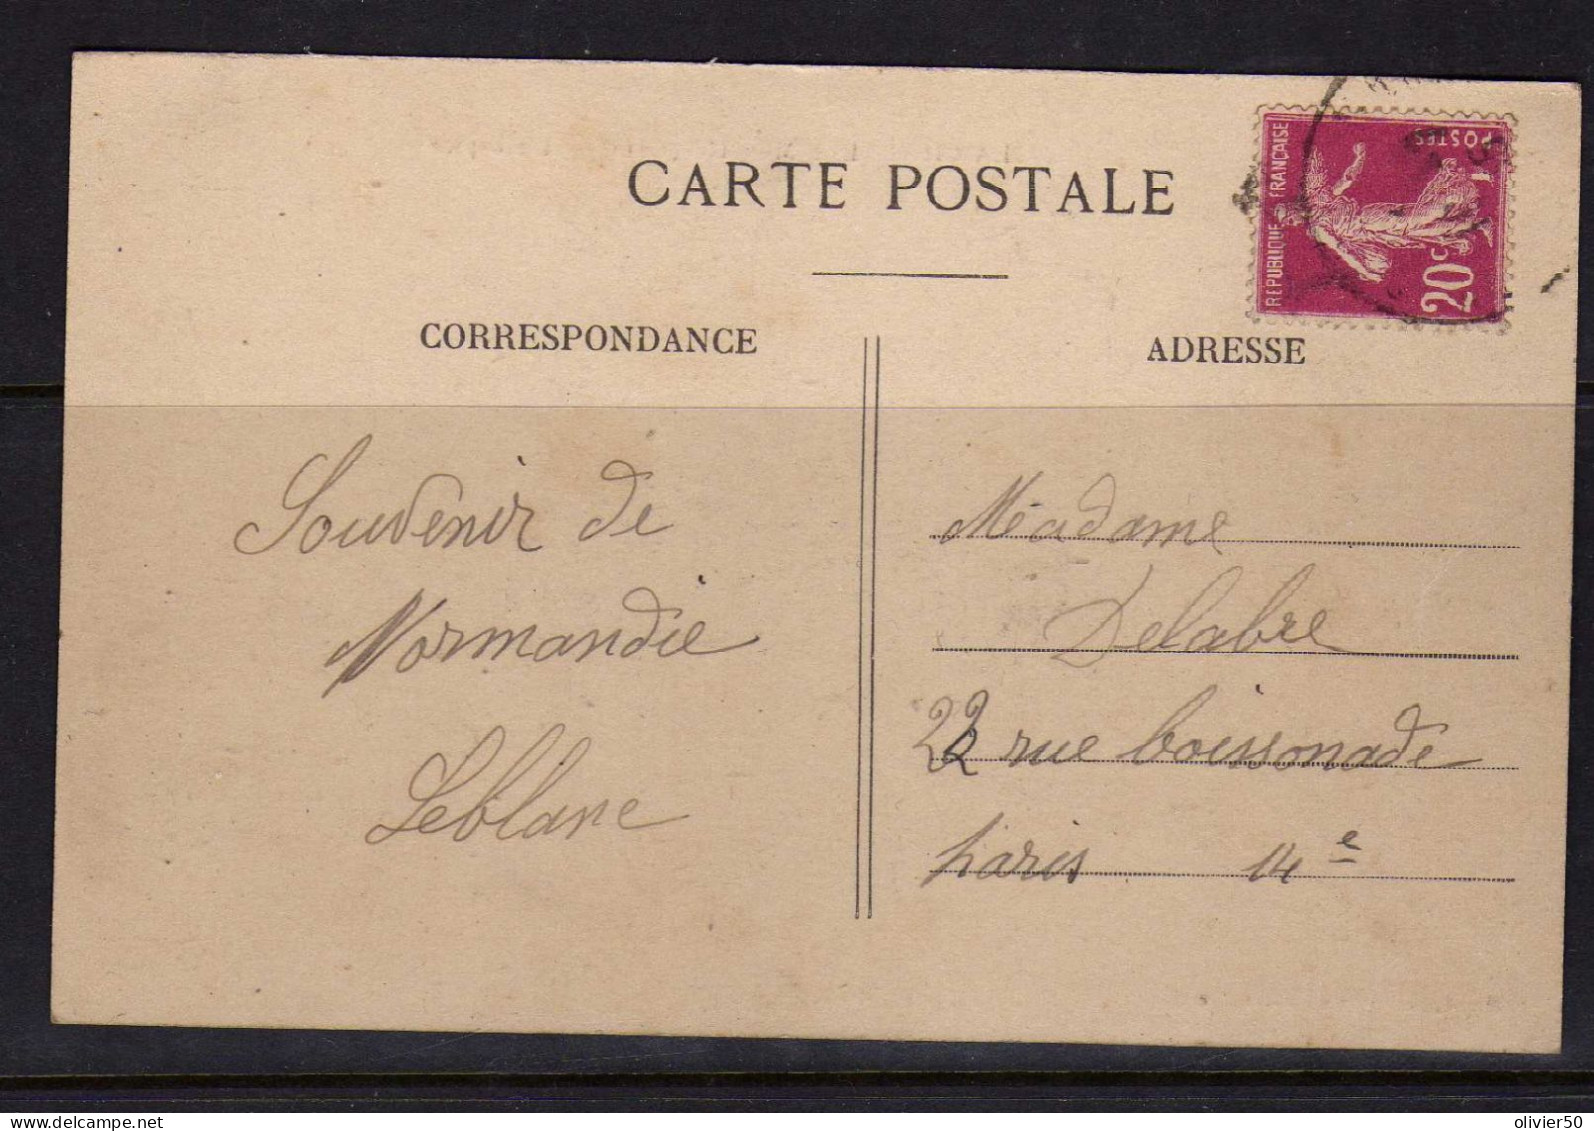 CARTE POSTALE
RÉPUBLIQUE FRANÇAISE
POSTES
20c
CORRESPONDANCE
ADRESSE
Souvenir de
Normandie
Leblanc
Madame
Delabre
22 rue boissonade
paris 14e
olivier50